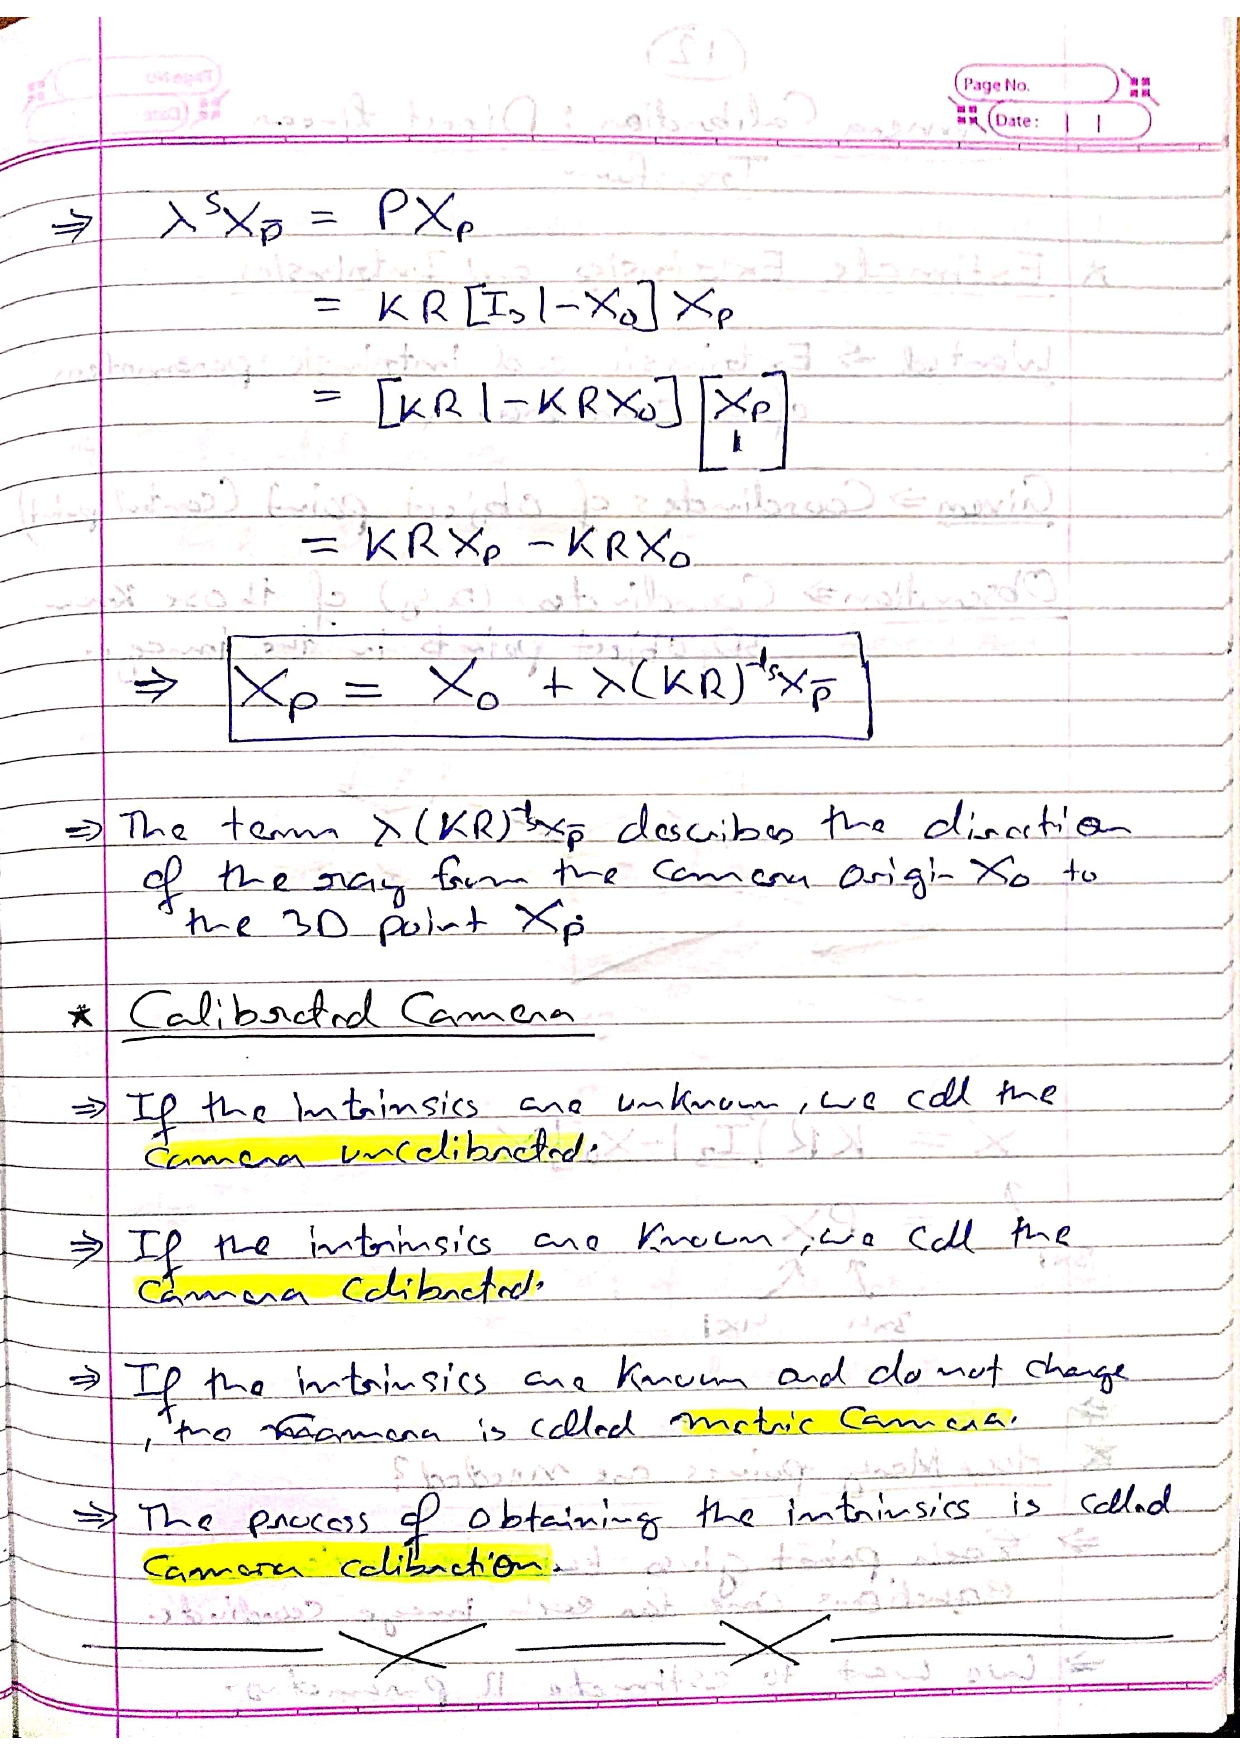 Page No.
Date:
⇒ λ ˢX_p̄ = PX_p
= KR[I₃|-X₀]X_p
= [KR|-KRX₀][X_p
1]
= KRX_p - KRX₀
⇒ X_p = X₀ + λ(KR)⁻¹ ˢX_p̄
⇒ The term λ(KR)⁻¹ ˢX_p̄ describes the direction
of the ray from the camera origin X₀ to
the 3D point X_p.
* Calibrated Camera
⇒ If the intrinsics are unknown, we call the
camera uncalibrated.
⇒ If the intrinsics are known, we call the
camera calibrated.
⇒ If the intrinsics are known and do not change
, the camera is called metric camera.
⇒ The process of obtaining the intrinsics is called
camera calibration.